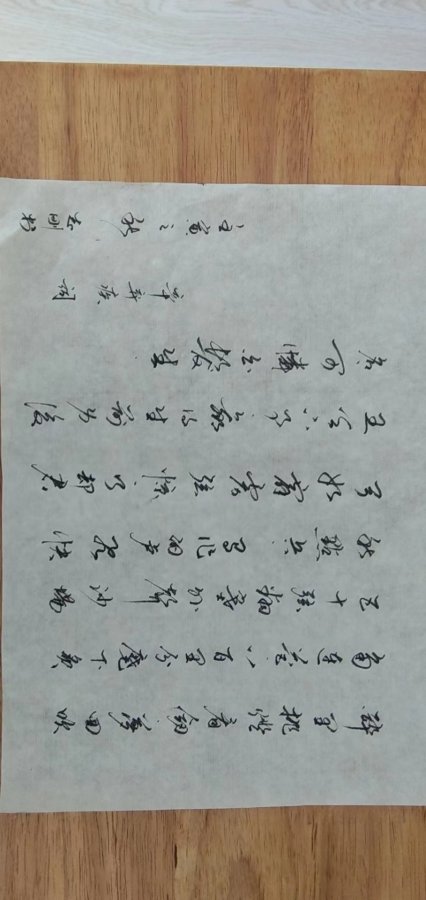 醉里挑灯看剑梦回吹
角连营八百里分麾下炙
五十弦翻塞外声沙场
秋点兵马作的卢飞快
弓如霹雳弦惊了却君
王天下事赢得生前身后
名可怜白发生
辛弃疾词
壬寅之秋 刚书